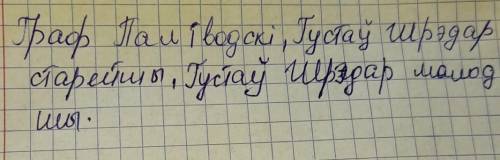 Граф Паліводскі, Густаў Шрэдар
старейшы, Густаў Шрэдар молод
шы.